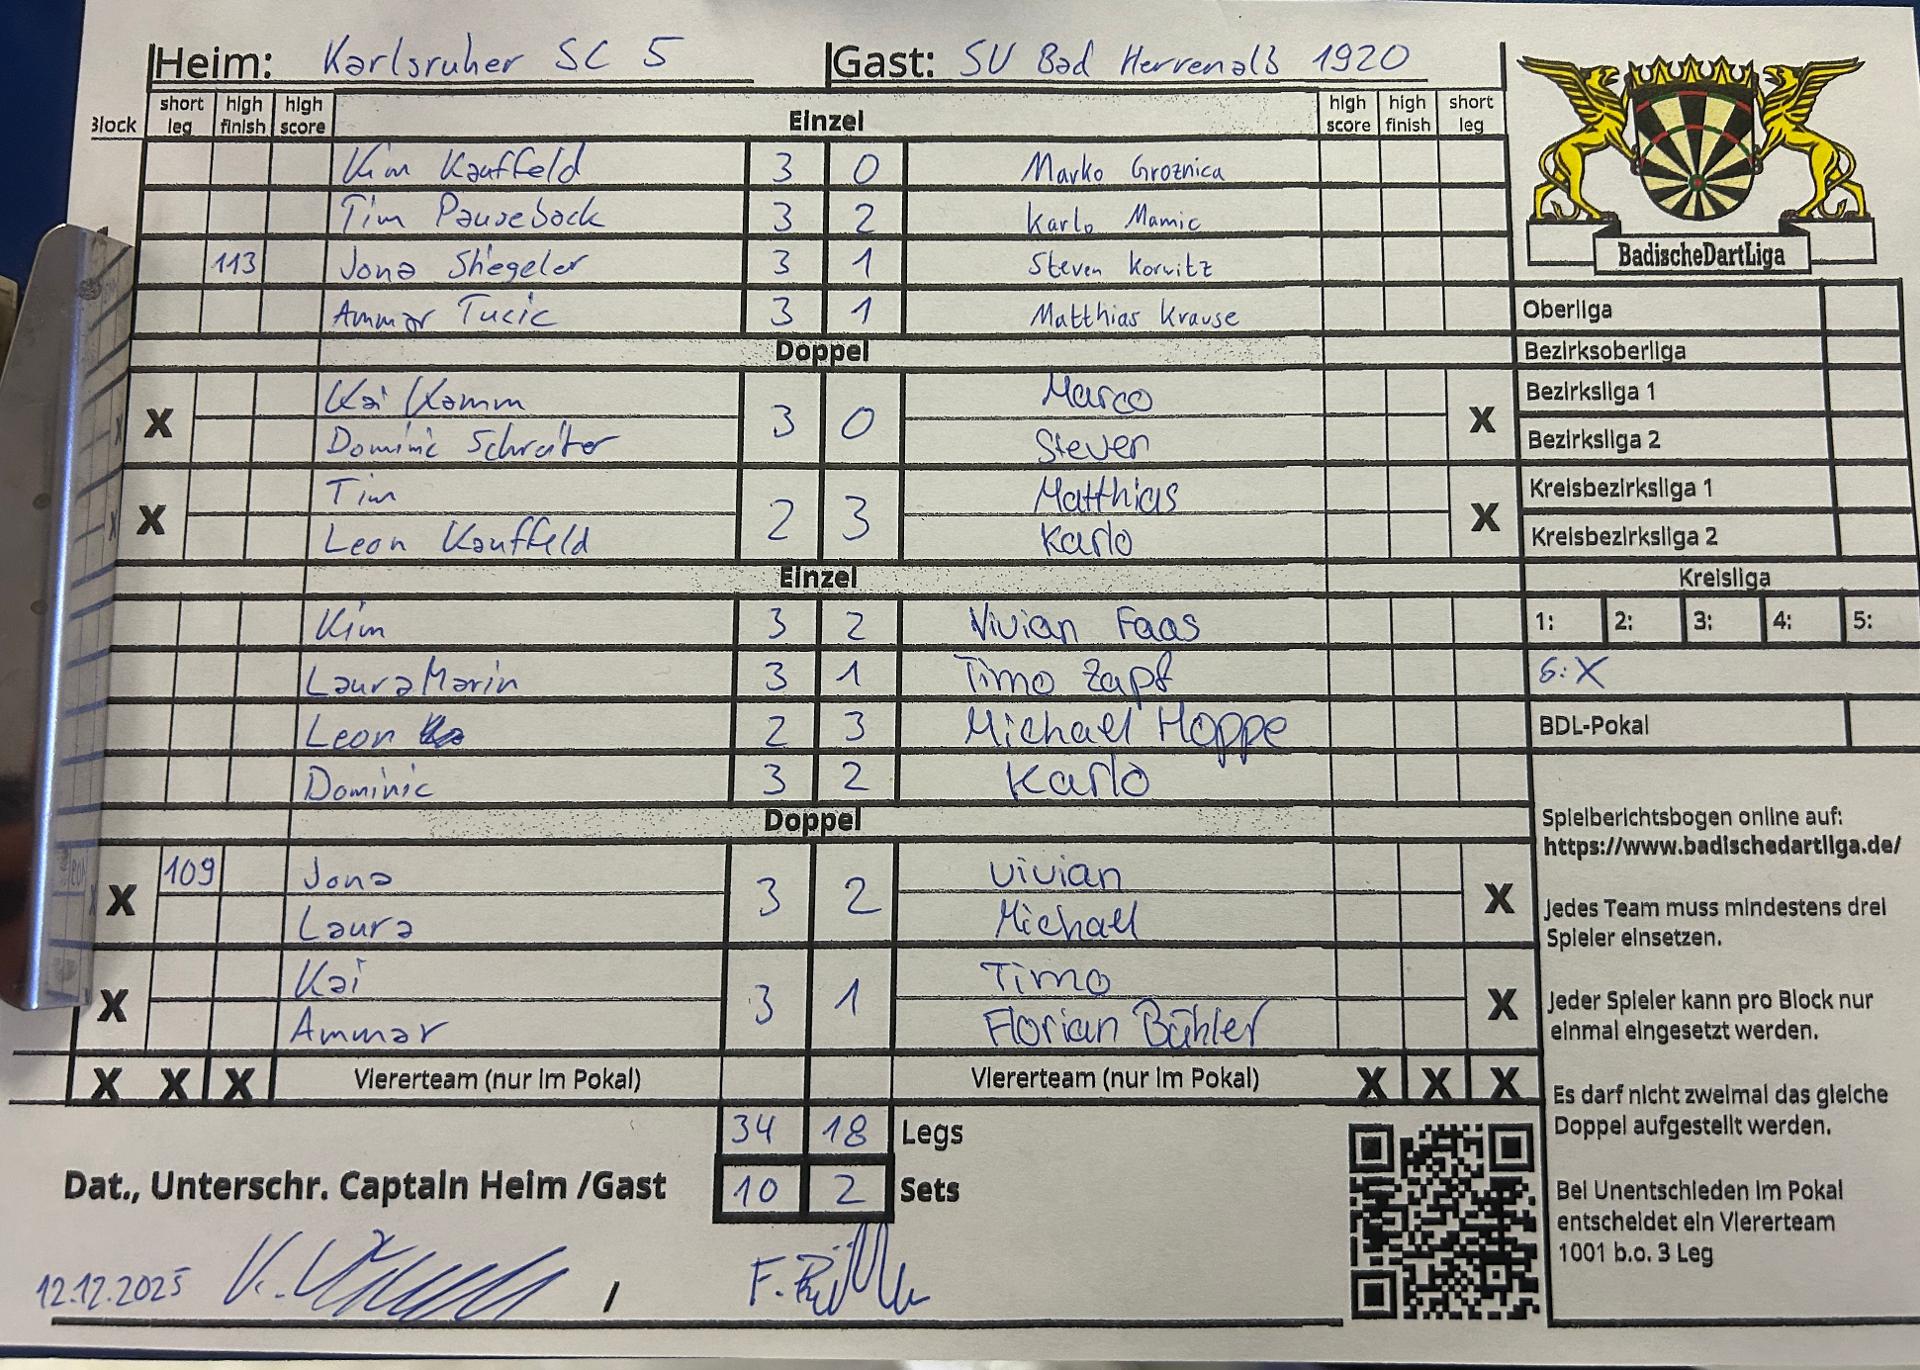 Heim: Karlsruher SC 5 Gast: SV Bad Herrenalb 1920
Block short leg high finish high score Einzel high score high finish short leg
Kim Kauffeld 3 0 Marko Groznica
Tim Pauseback 3 2 Karlo Mamic
113 Jona Stiegeler 3 1 Steven Korwitz
Ammar Tucic 3 1 Matthias Krause
Doppel
X Kai Kamm 3 0 Marco X
Dominic Schreiter Steven
X Tim 2 3 Matthias X
Leon Kauffeld Karlo
Einzel
Kim 3 2 Vivian Faas
Laura Marin 3 1 Timo Zapf
Leon 2 3 Michael Hoppe
Dominic 3 2 Karlo
Doppel
X 109 Jona 3 2 Vivian X
Laura Michael
X Kai 3 1 Timo X
Ammar Florian Bühler
X X X Viererteam (nur im Pokal) Viererteam (nur im Pokal) X X X
34 18 Legs
Dat., Unterschr. Captain Heim /Gast 10 2 Sets
12.12.2025 /
BadischeDartLiga
Oberliga
Bezirksoberliga
Bezirksliga 1
Bezirksliga 2
Kreisbezirksliga 1
Kreisbezirksliga 2
Kreisliga
1: 2: 3: 4: 5:
6: X
BDL-Pokal
Spielberichtsbogen online auf:
https://www.badischedartliga.de/
Jedes Team muss mindestens drei
Spieler einsetzen.
Jeder Spieler kann pro Block nur
einmal eingesetzt werden.
Es darf nicht zweimal das gleiche
Doppel aufgestellt werden.
Bei Unentschieden im Pokal
entscheidet ein Viererteam
1001 b.o. 3 Leg